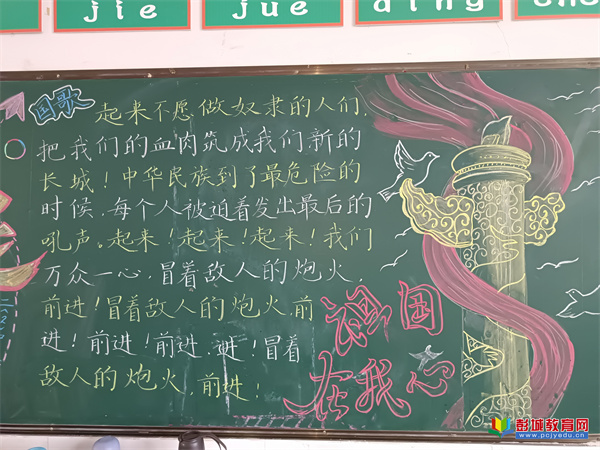 jie
jue
ding
国歌
起来不愿做奴隶的人们,
把我们的血肉筑成我们新的
长城!中华民族到了最危险的
时候,每个人被迫着发出最后的
吼声。起来!起来!起来!我们
万众一心,冒着敌人的炮火,
前进!冒着敌人的炮火,前
进!前进!前进、进!冒着
敌人的炮火,前进!
祖国
在我心
彭城教育网
www.pcjyedu.cn